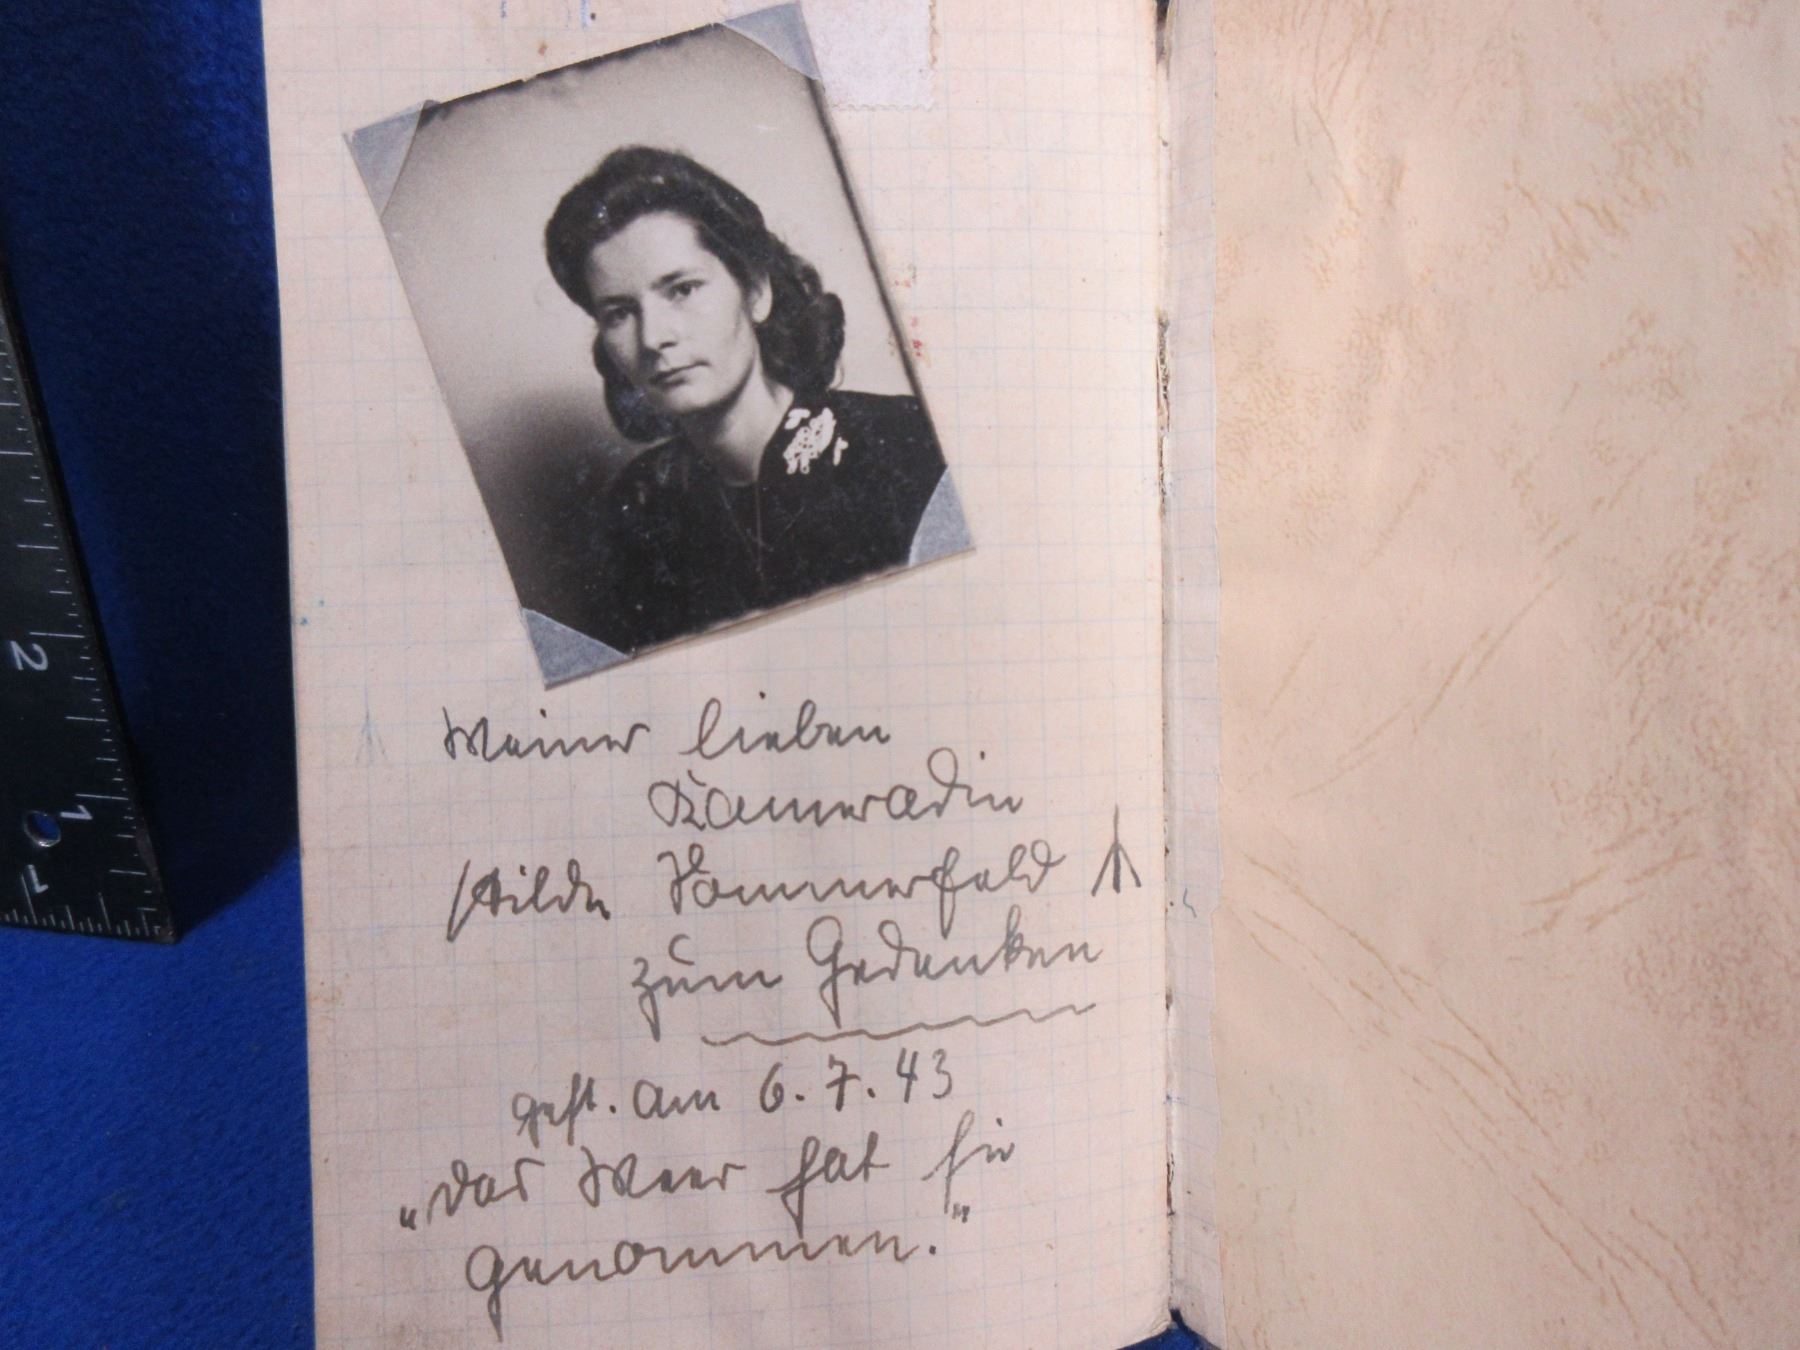 Meiner lieben
Kameradin
Hilde Sommerfeld ᛣ
zum Gedenken
gest. am 6.7.43
„Das Meer hat sie
genommen."
2
1